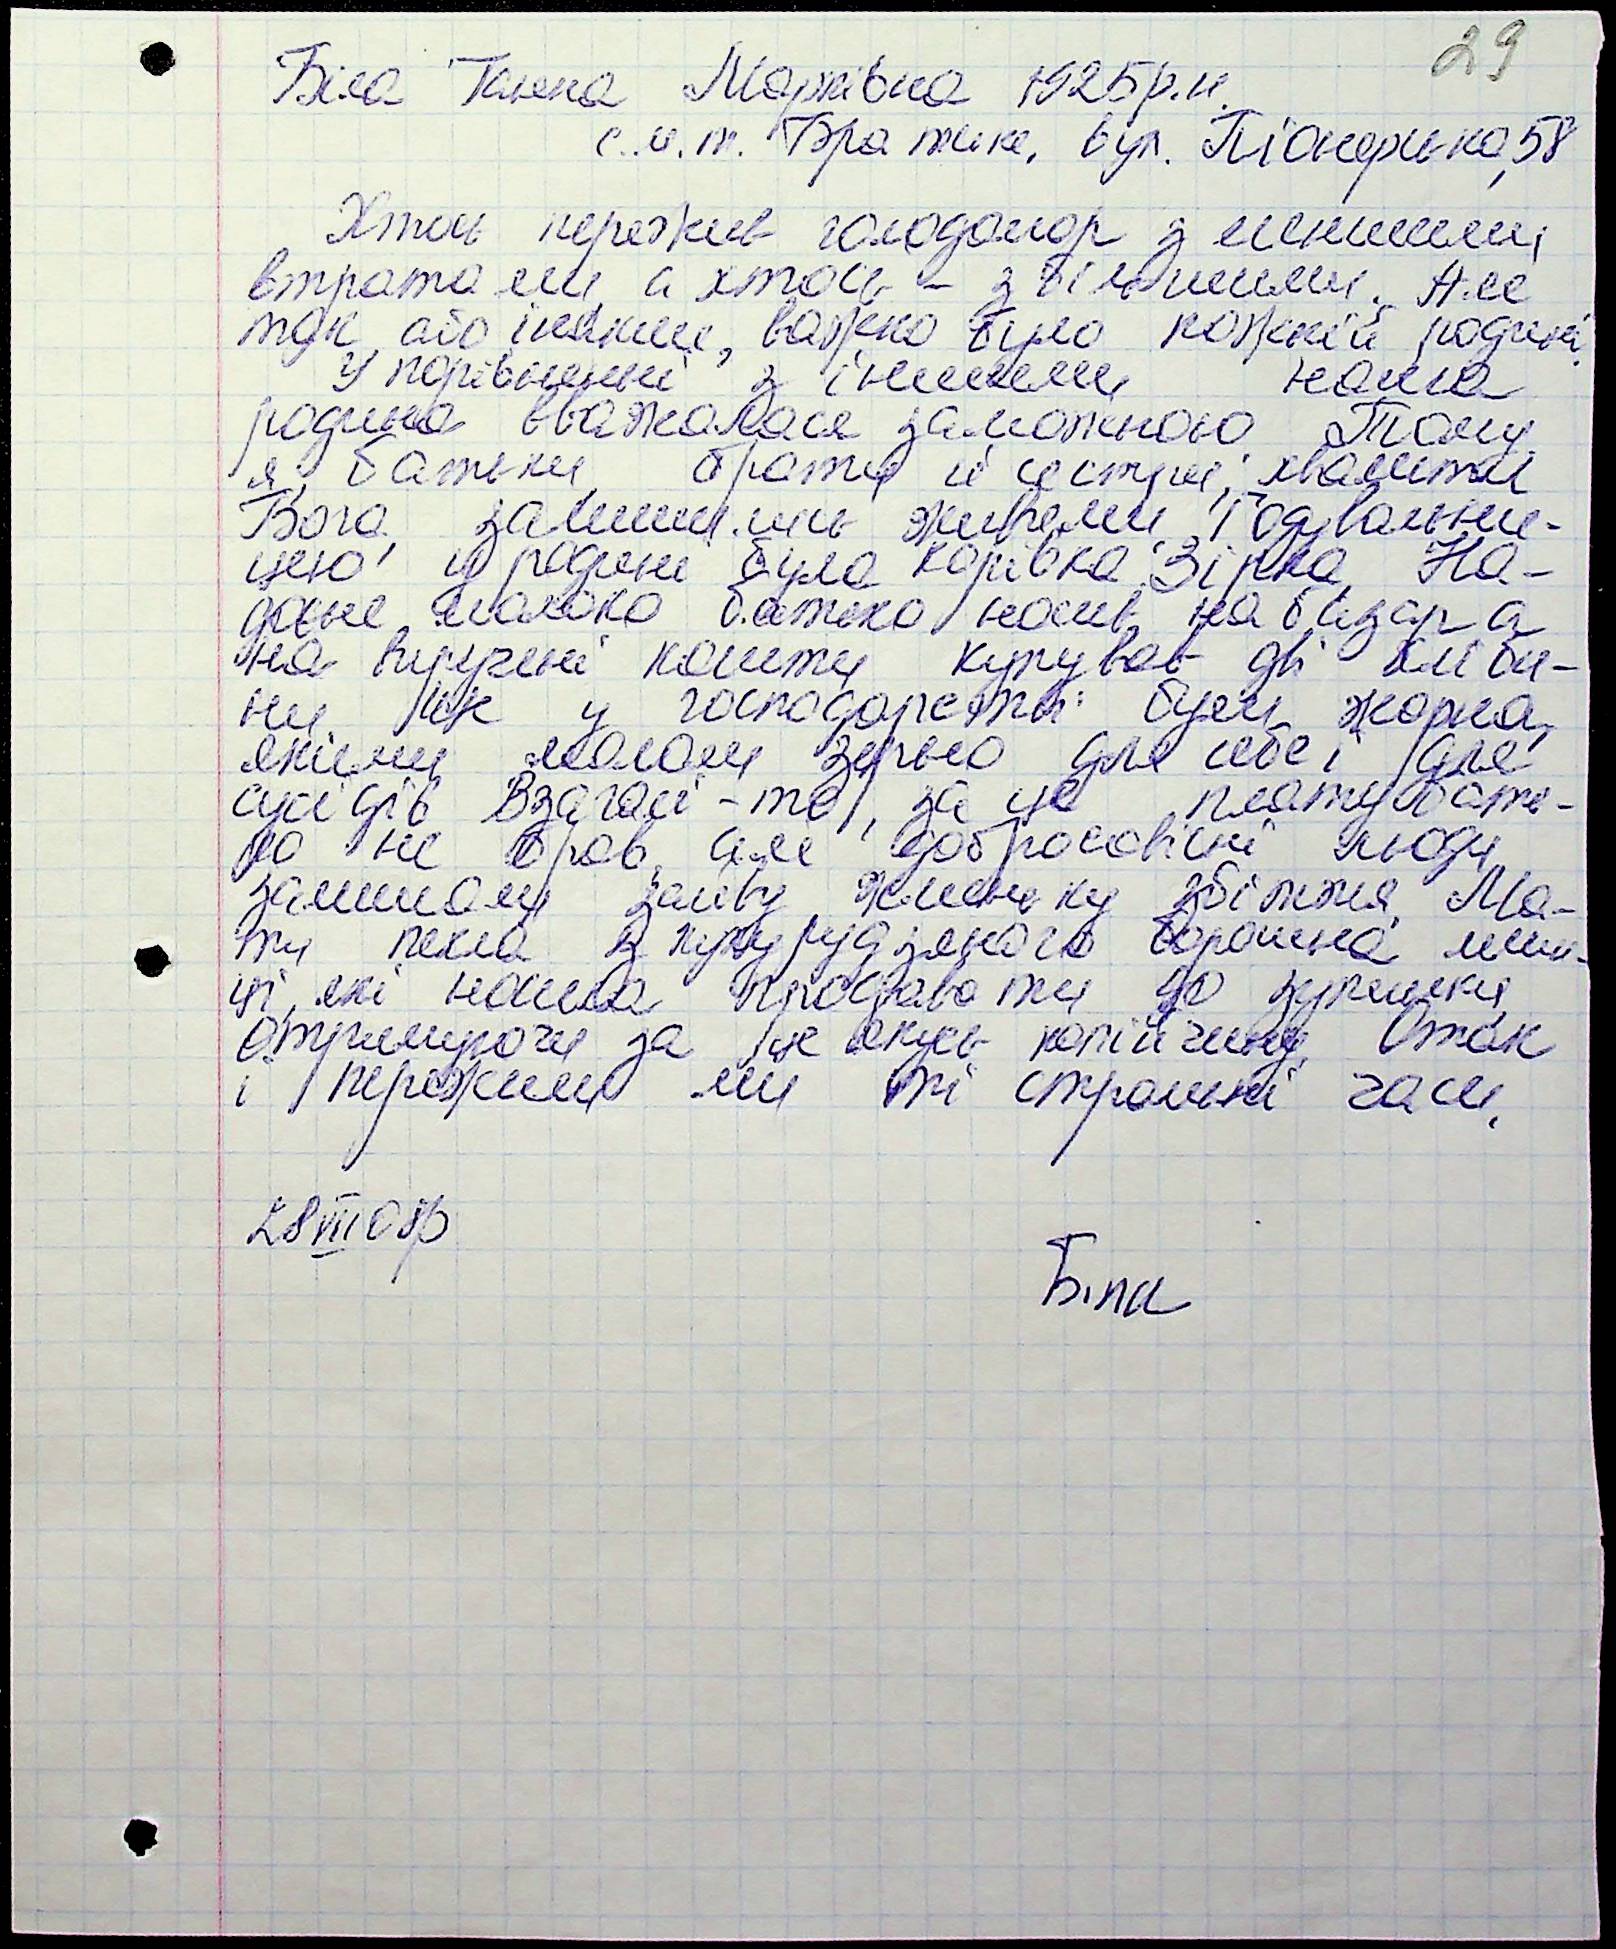 29
Біла Ганна Марківна 1925 р.н.
с.м.т. Братське, вул. Піонерська, 58
Хтось пережив голодомор з меншими
втратами, а хтось – з більшими. Але
так або інакше, важко було кожній родині.
У порівнянні з іншими наша
родина вважалася заможною. Тому
я, батьки, брати й сестри, хвалити
Бога, залишились живими. Годувальни-
цею у родині була корівка Зірка. На-
доєне молоко батько носив на базар, а
на виручені кошти купував дві хліби-
ни. Ще у господарстві були жорна,
якими мололи зерно для себе і для
сусідів. Взагалі-то, за це плату бать-
ко не брав, але добросовісні люди
залишали зайву жменьку збіжжя. Ма-
ти пекла з кукурудзяного борошна млин-
ці, які носила продавати до зупинки,
отримуючи за це якусь копійчину. Отак
і пережили ми ті страшні часи.
28 VII 08р
Біла